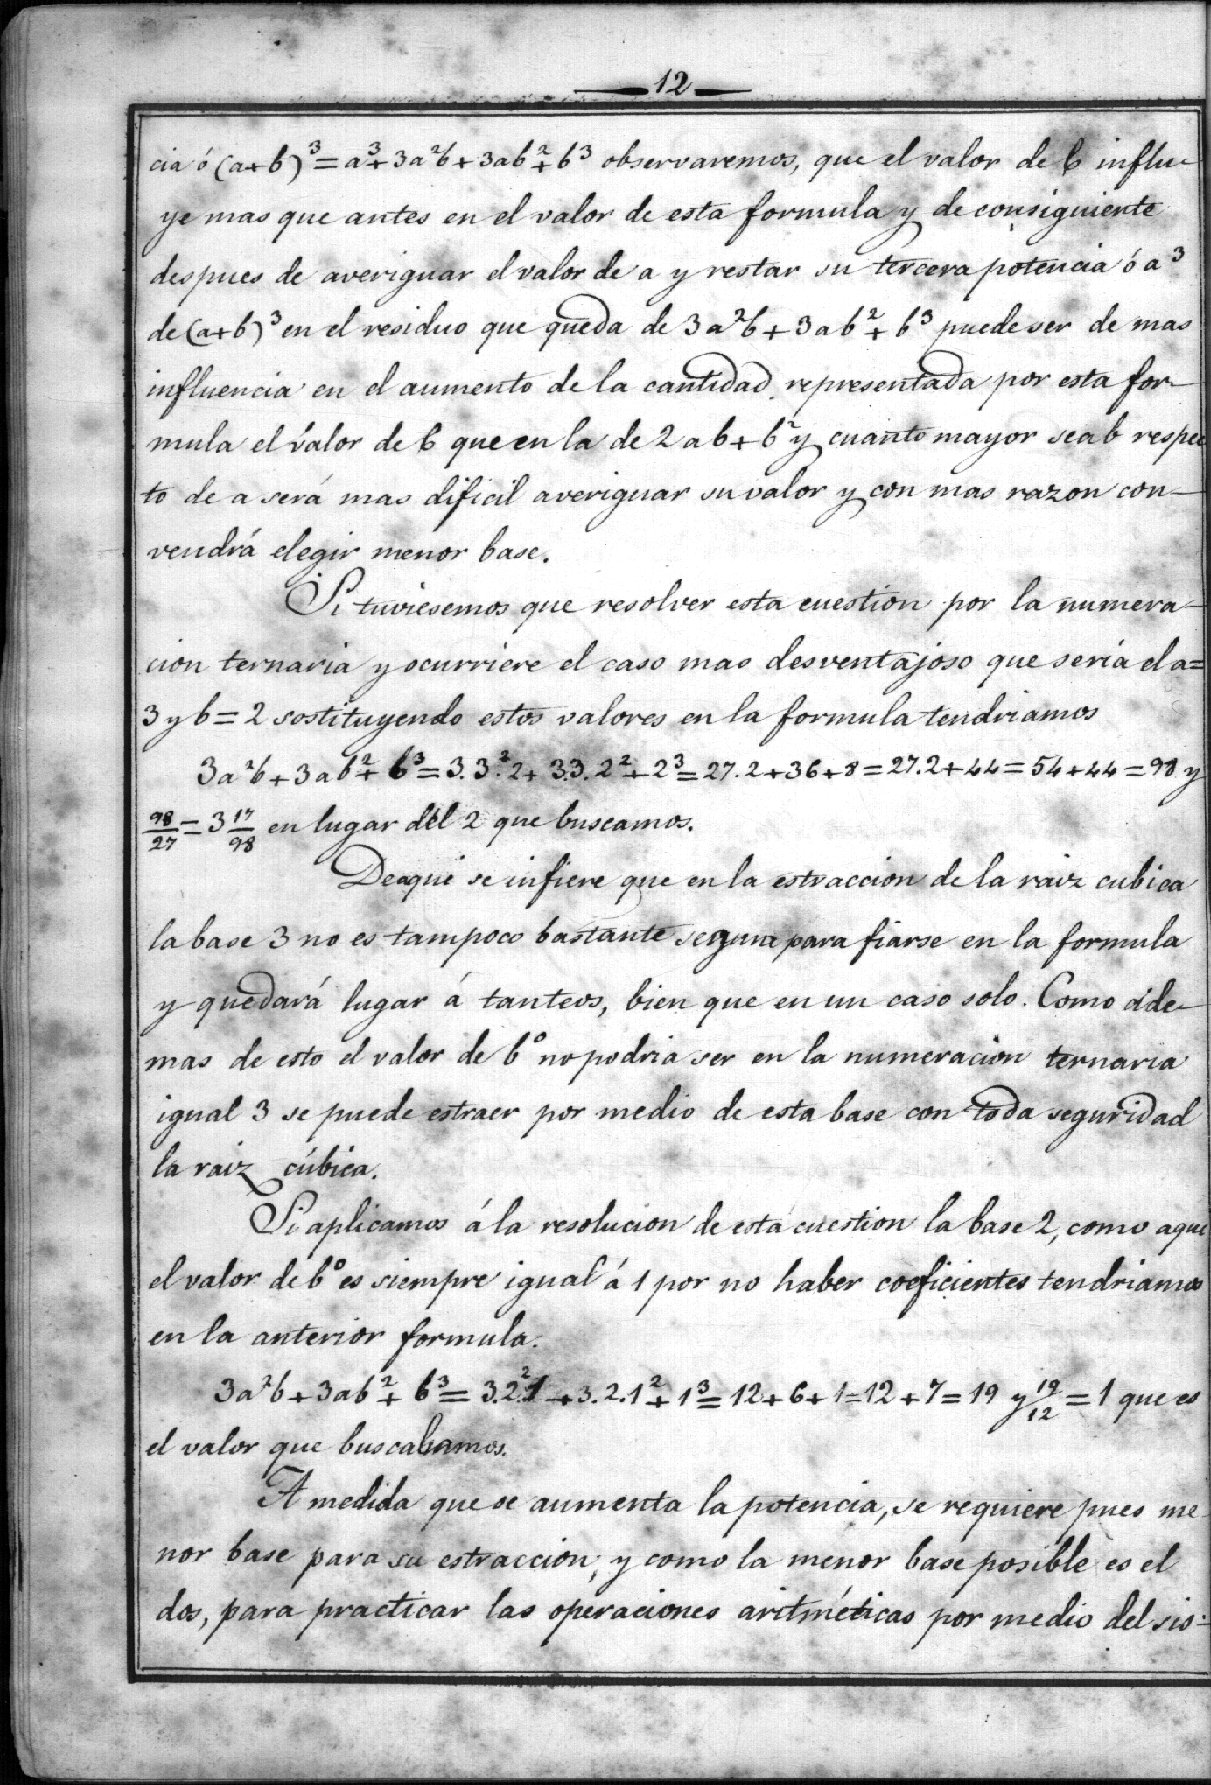 12
cia ó (a+b)³=a³+3a²b+3ab²+b³ observaremos, que el valor de b influ-
ye mas que antes en el valor de esta formula y de consiguiente
despues de averiguar el valor de a y restar su tercera potencia ó a³
de (a+b)³ en el residuo que queda de 3a²b+3ab²+b³ puede ser de mas
influencia en el aumento de la cantidad representada por esta for-
mula el valor de b que en la de 2ab+b² y cuanto mayor sea b respec
to de a será mas dificil averiguar su valor y con mas razon con-
vendrá elegir menor base.
Si tuviesemos que resolver esta cuestion por la numera-
cion ternaria y ocurriere el caso mas desventajoso que seria el a=
3 y b=2 sostituyendo estos valores en la formula tendriamos
3a²b+3ab²+b³=3.3².2+3.3.2²+2³=27.2+36+8=27.2+44=54+44=98 y
98/27=3 17/98 en lugar del 2 que buscamos.
De aqui se infiere que en la estraccion de la raiz cubica
la base 3 no es tampoco bastante segura para fiarse en la formula
y quedará lugar á tanteos, bien que en un caso solo. Como ade-
mas de esto el valor de b⁰ no podria ser en la numeracion ternaria
igual 3 se puede estraer por medio de esta base con toda seguridad
la raiz cúbica.
Si aplicamos á la resolucion de esta cuestion la base 2, como aqui
el valor de b⁰ es siempre igual á 1 por no haber coeficientes tendriamos
en la anterior formula.
3a²b+3ab²+b³=3.2².1+3.2.1²+1³=12+6+1=12+7=19 y 19/12=1 que es
el valor que buscabamos.
A medida que se aumenta la potencia, se requiere pues me
nor base para su estraccion, y como la menor base posible es el
dos, para practicar las operaciones aritméticas por medio del sis-